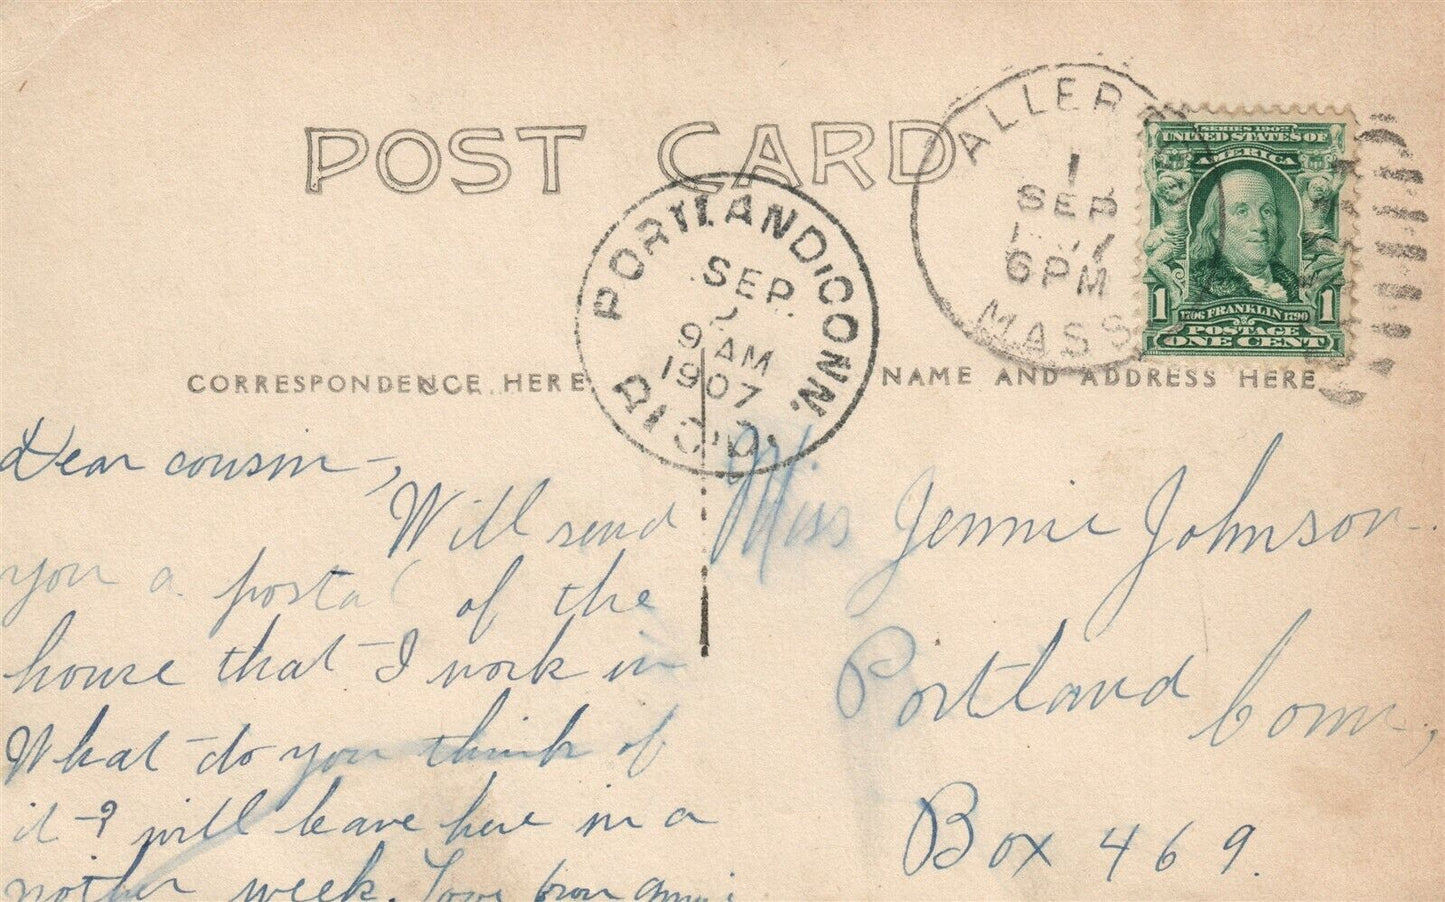 POST CARD
ALLER
1
SEP
6 PM
MASS
SERIES 1902
UNITED STATES OF
AMERICA
1 1
1706 FRANKLIN 1790
POSTAGE
ONE CENT
PORTLAND, CONN.
SEP
9 AM
1907
REC'D.
CORRESPONDENCE HERE
NAME AND ADDRESS HERE
Dear cousin -,
Will send
you a postal of the
house that I work in
What do you think of
it? will leave here in a
nother week. Love from
Miss Jennie Johnson.
Portland Conn.,
Box 469.